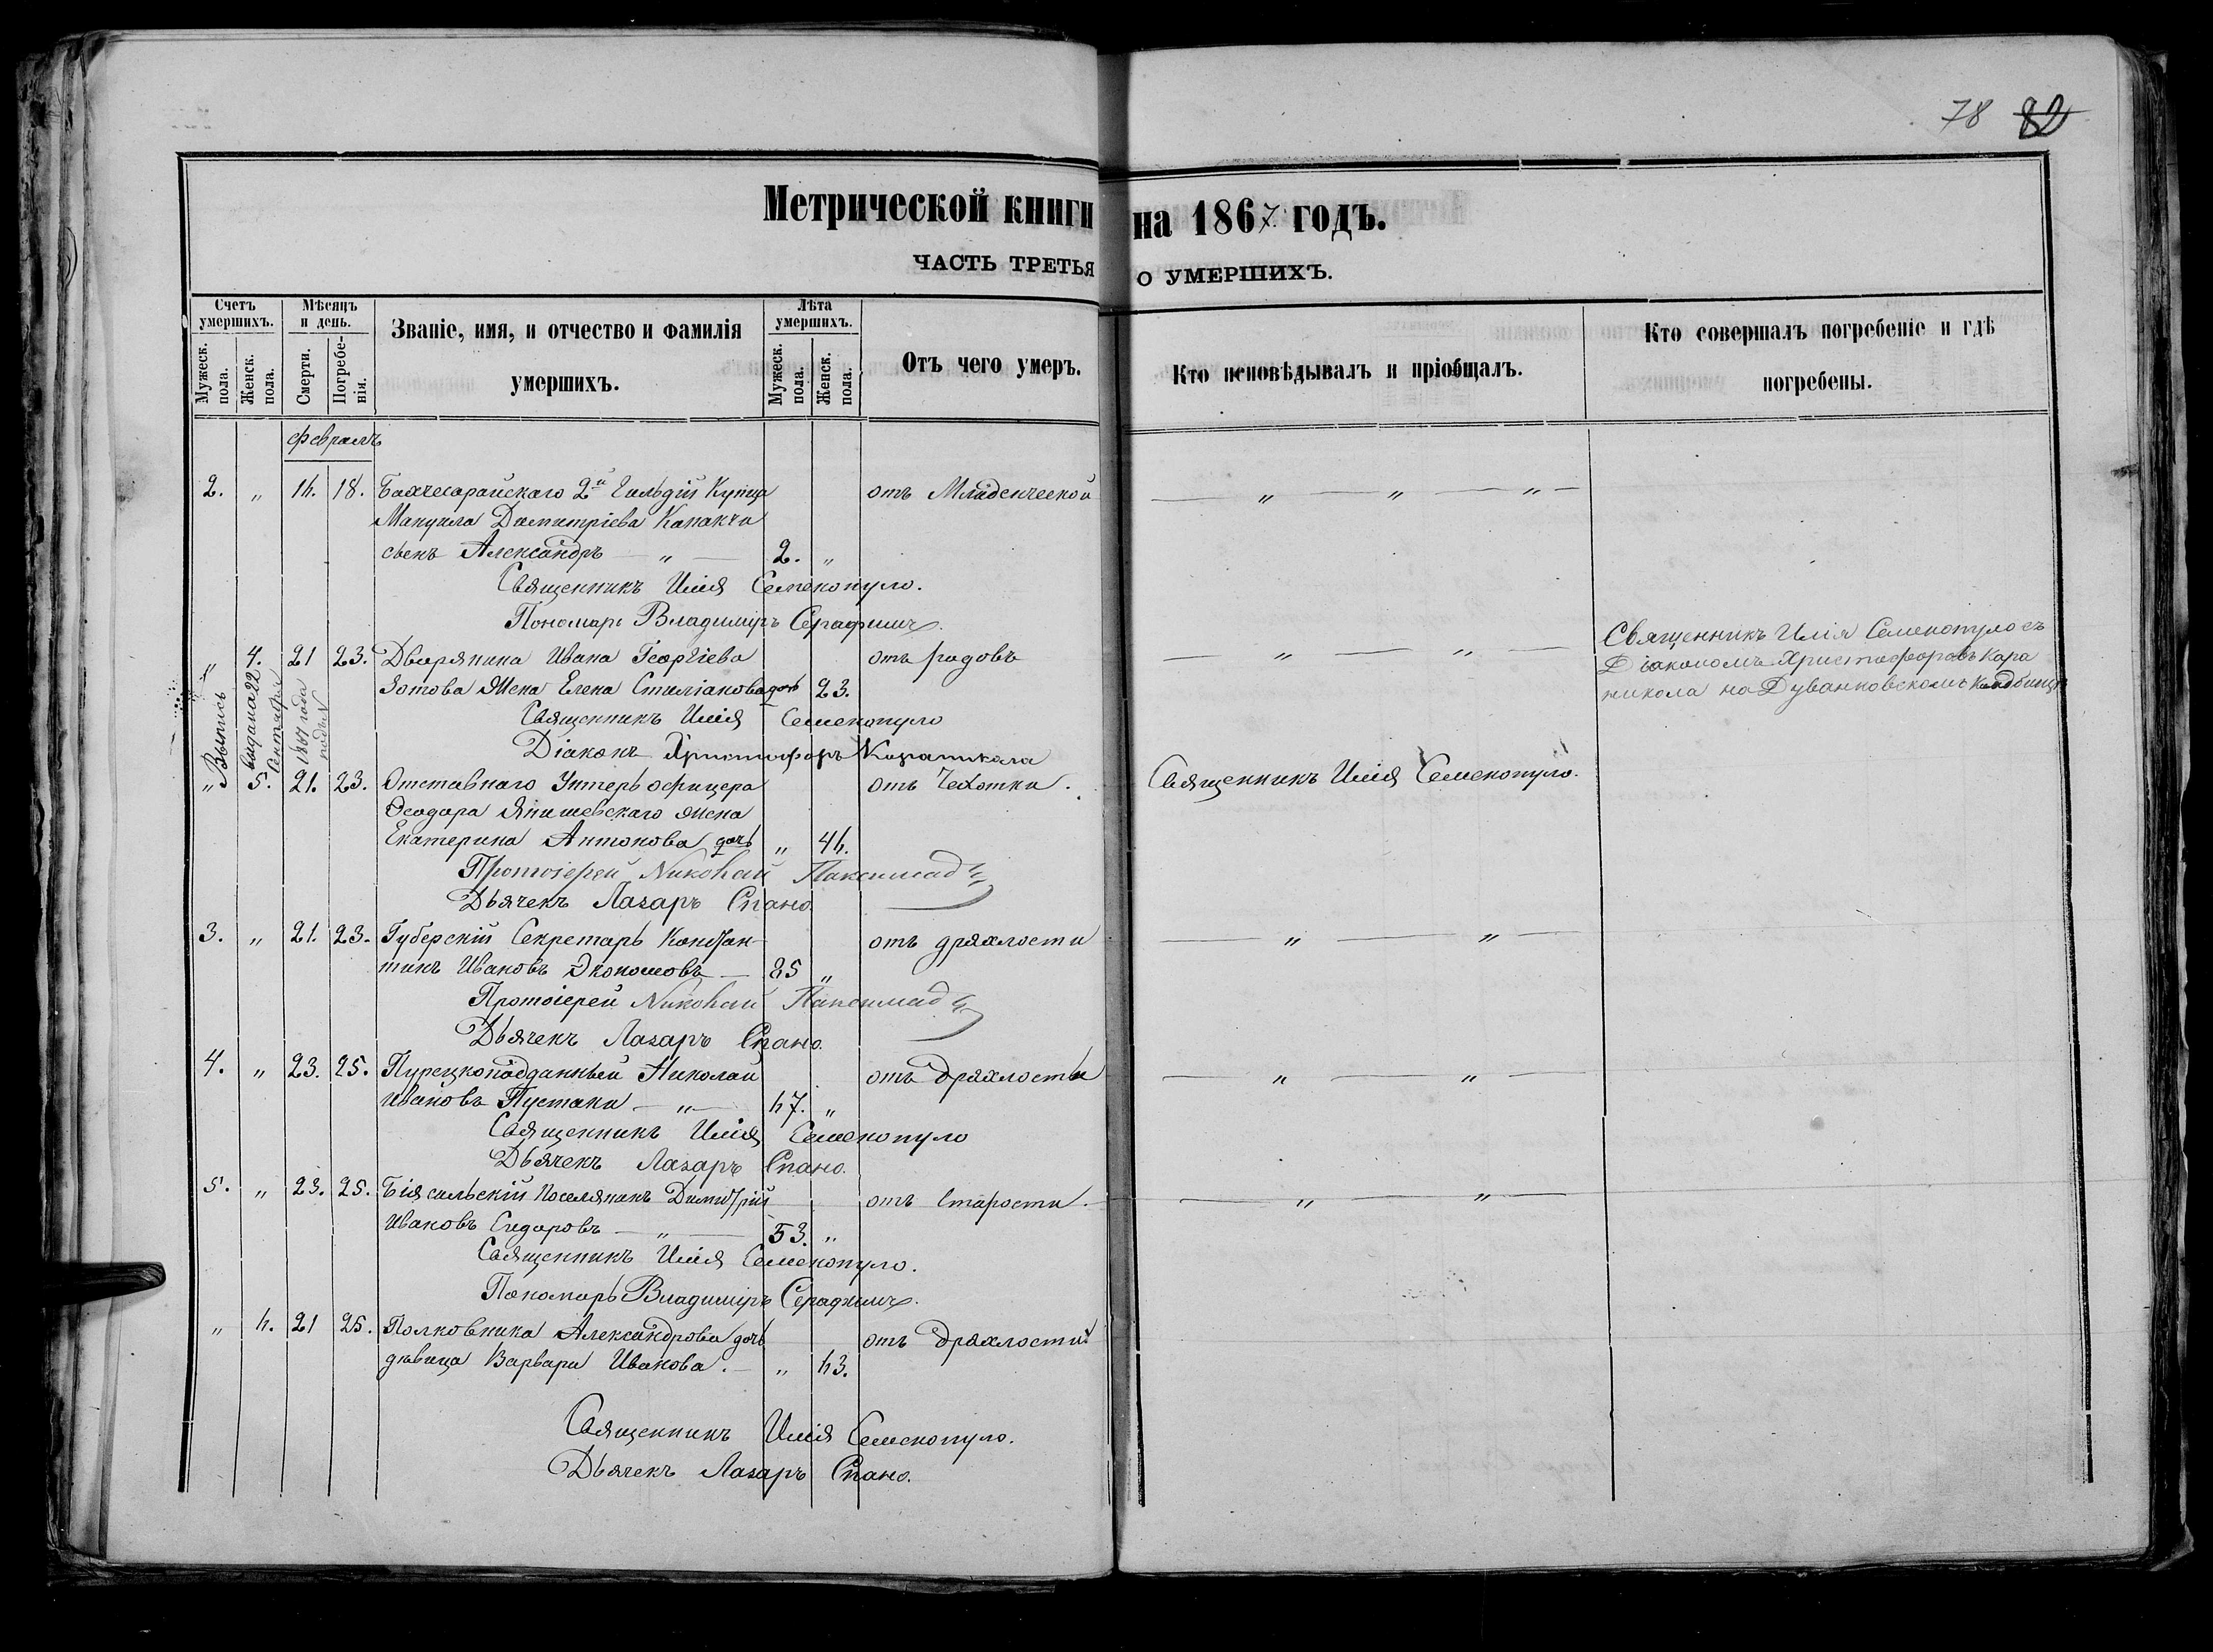 78 82
Метрической книги на 1867 годъ.
ЧАСТЬ ТРЕТЬЯ О УМЕРШИХЪ.
Счетъ умершихъ.
Мужеск. пола.
Женск. пола.
Мѣсяцъ и день.
Смерти.
Погребе-
нія.
Званіе, имя, и отчество и фамилія
умершихъ.
Лѣта умершихъ.
Мужеск. пола.
Женск. пола.
Отъ чего умеръ.
Кто исповѣдывалъ и пріобщалъ.
Кто совершалъ погребеніе и гдѣ
погребены.
февраль
2. " 16. 18. Бахчесарайскаго 2й Гильдіи Купца отъ Младенческой — " — " — " —
Мануила Димитріева Капакчи
сынъ Александръ — " — 2. "
Священникъ Илія Семенопуло.
Пономарь Владиміръ Серафимъ
" 4. 21 23. Дворянина Ивана Георгіева отъ родовъ — " — " —
Зотова Жена Елена Стиліанова дочь 23.
Священникъ Илія Семенопуло
Діаконъ Христофоръ Карапикола
Священникъ Илія Семенопуло съ
Діакономъ Христофоромъ Кара
никола на Дуванковскомъ Кладбищѣ
Выпись
выдана 22
Сентября
1867 года
подъ №
" 5. 21. 23. Отставнаго Унтеръ офицера отъ Чехотки. Священникъ Илія Семенопуло.
Ѳеодора Янишевскаго жена
Екатерина Антонова дочь " 46.
Протоіерей Николай Паксимад
Дьячекъ Лазаръ Спано.
3. " 21. 23. Губерскій Секретарь Констан- отъ дряхлости — " — " —
тинъ Ивановъ Экономовъ — 85 "
Протоіерей Николай Паксимад
Дьячекъ Лазаръ Спано.
4. " 23. 25. Турецкоподданный Николай отъ дряхлости — " — " —
Ивановъ Пустаки — " — 67. "
Священникъ Илія Семенопуло
Дьячекъ Лазаръ Спано.
5. " 23. 25. Біясальскій Поселянинъ Димитрій отъ Старости. — " — " —
Ивановъ Сидоровъ — " — 53. "
Священникъ Илія Семенопуло.
Пономарь Владиміръ Серафимъ.
" 6. 21 25. Полковника Александрова дочь отъ дряхлости
дѣвица Варвара Иванова. — " 63.
Священникъ Илія Семенопуло.
Дьячекъ Лазаръ Спано.